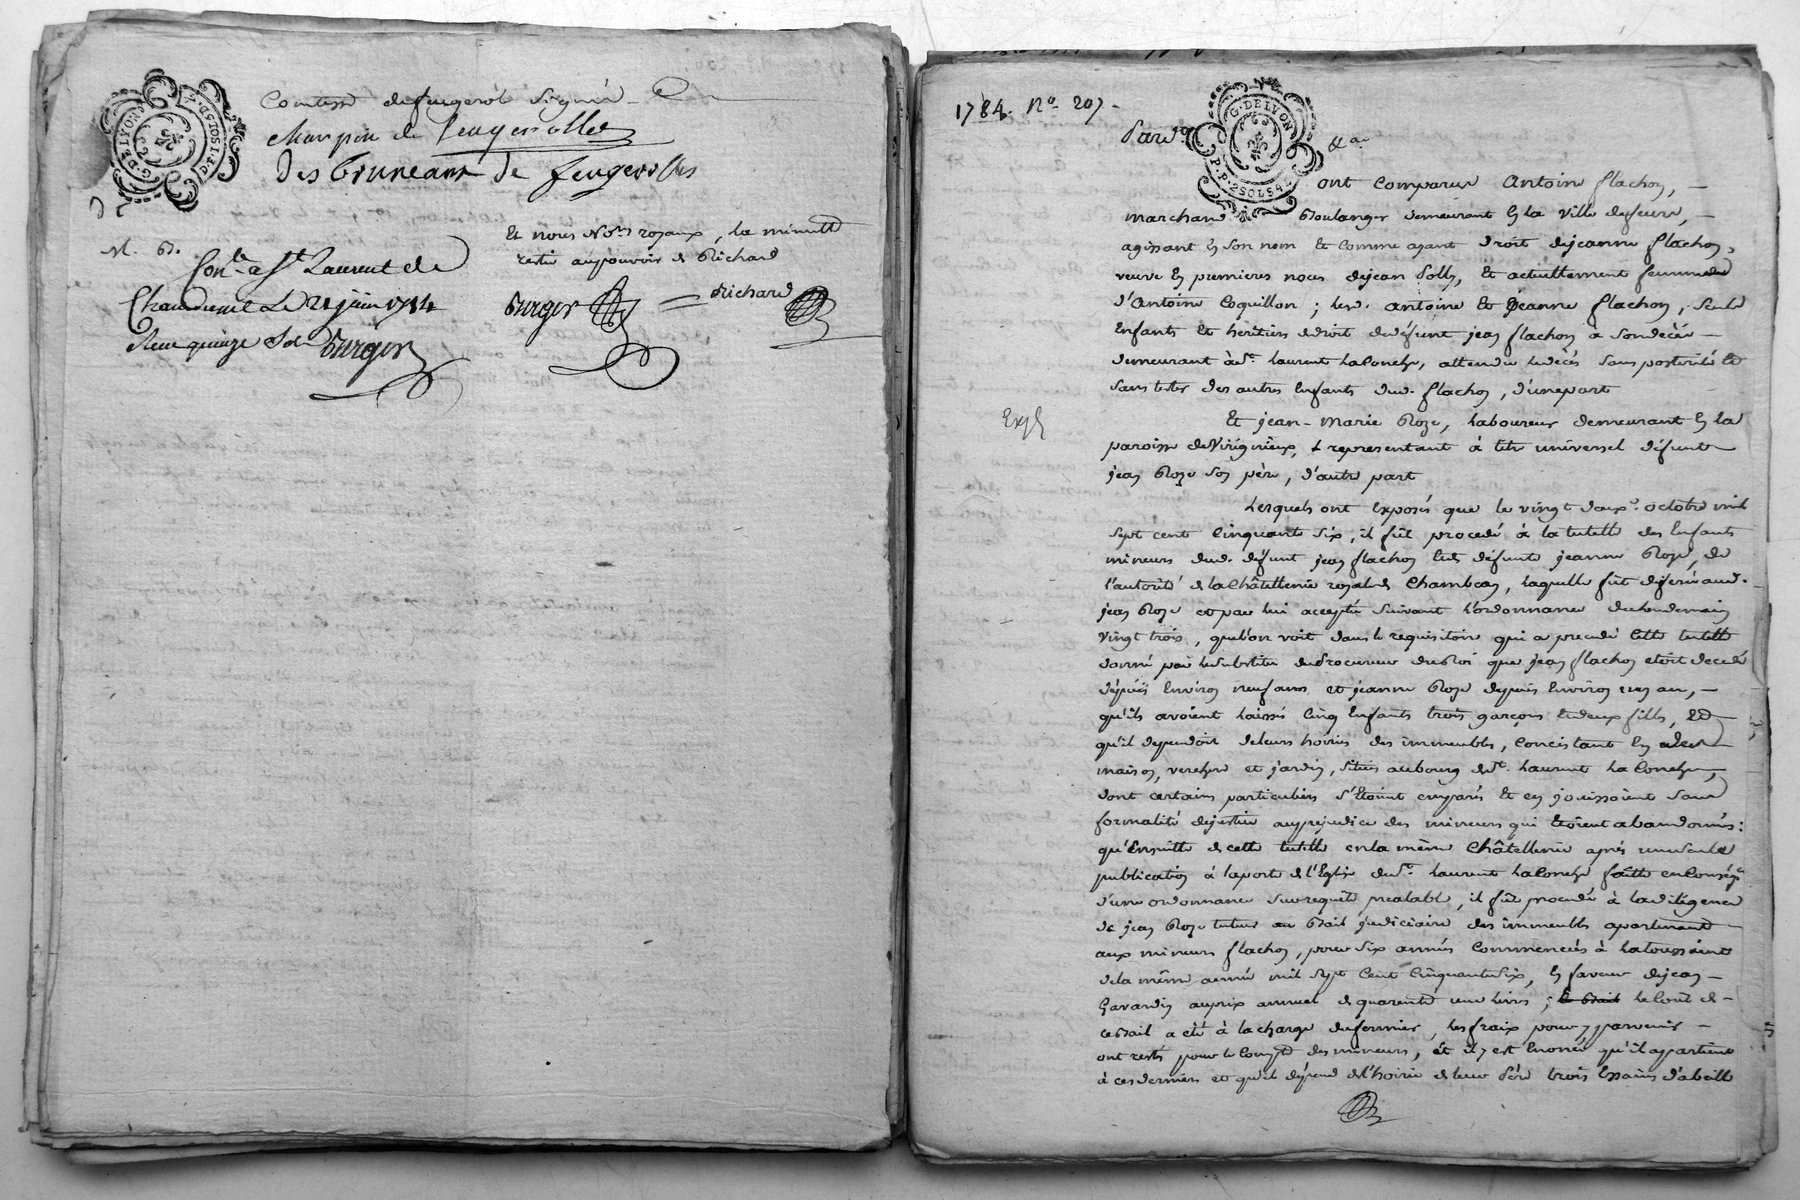 G. DE LYON
D. P. 1 SOL 5 D.
Comtesse defeugerol Signée
charpin de feugerolles
Des bruneaux de feugerolles
Et nous No.res royaux, la minutte
restée aupouvoir de Richard
M. D.
Con.lé a St. Laurent de
Chamousset Le 21 juin 1784
Reçu quinze sols Burgers
Burgers
Richard
1784. No. 207.
Pard.t
&a.
G. DE LYON
P. P. 2 SOLS 4 D.
ont comparus Antoine flachon,
marchand Boulanger demeurant En la ville defeurs,
agissant En son nom Et comme ayant droit dejeanne flachon,
veuve En premieres noces dejean Polly, Et actuellement femme
d'Antoine Coquillon ; lesd. Antoine Et Jeanne flachon, Seuls
Enfants Et heritiers dedroit dudéfunt jean flachon à Sondécès
demeurant à St. laurent laConche, attendu ledécès Sans postérité Et
Sans tester des autres Enfants dud. flachon, d'unepart
Exp.é
Et jean-Marie Roze, laboureur demeurant En la
paroisse deVirignieux, & representant à titre universel défunt
jean Roze Son père, d'autre part
Lesquels ont Exposés que le vingt deux.e octobre mil
Sept cent Cinquante Six, il fût procedé à la tutelle des Enfants
mineurs dud. défunt jean flachon Et de défunte jeanne Roze, de
l'autorité de laChâtellenie royale de Chambeon, laquelle fût déferée aud.
jean Roze et par lui acceptée Suivant l'ordonnance dulendemain
vingt trois, quel'on voit dans le requisitoire qui a precedé Cette tutelle
donné par leSubstitu duProcureur duRoi que jean flachon etoit decedé
dépuis Environ neufans et jeanne Roze depuis Environ un an,
qu'ils avoient laissés Cinq Enfants trois garçons Et deux filles, Et
qu'il dependoit deleurs hoiries des immeubles, Concistant En
maison, verchere et jardin, Situés aubourg de St. laurent la Conche,
dont certains particuliers S'Etoient emparés Et en jouissoient Sans
formalité dejustice aupréjudice des mineurs qui Etoient abandonnés :
qu'Ensuitte de cette tutelle en la même Châtellenie après une seule
publication à laporte de l'Eglise de St. laurent laConche faitte en Conséq.ce
d'une ordonnance Sur requête prealable, il fût procedé à ladiligence
de jean Roze tuteur au Bail judiciaire des immeubles apartenant
aux mineurs flachon, pour Six années Commencées à latoussaint
dela même année mil Sept Cent Cinquante Six, En faveur dejean
Gavardin auprix annuel de quarente une livres ; le Coût de
cebail a été à lacharge dufermier, les fraix pour y parvenir
ont restés pour le Compte des mineurs, et il y est Enoncé qu'il appartient
à ces derniers et qu'il dépend de l'hoirie de leur Père trois Essains d'abeille